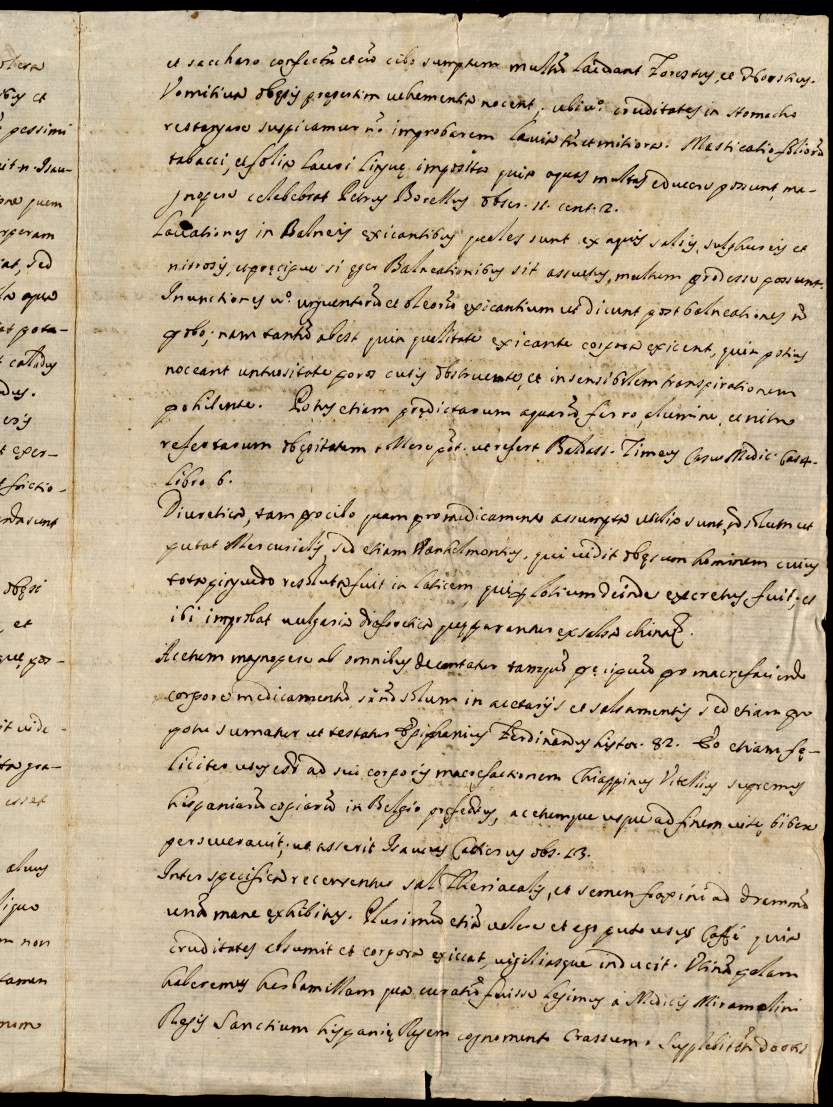 otera
et
pessimi
one quem
orperam
at, sed
opus
at pota-
calidus
exer-
frictio-
obesi
et
vide-
esset
alvus
non
tamen
et saccharo confectu et cu cibo sumptum multu laudant Forestus, et Horstius.
Vomitiva obesis presertim vehementia nocent, ubi vo. cruditates in stomacho
restagnare suspicamur no improbarem lenia tn et mitiora. Masticatio folioru
tabacci, et folia lauri lingue imposita quia aquas multas educere possunt, ma-
gnopere celebrat Petrus Borellus obser. 11. cent. 2.
Lavationes in Balneis exicantibus quales sunt ex aquis salsis, sulphureis et
nitrosis, et precipue si eger Balneationibus sit assuetus, multum prodesse possunt.
Inunctiones vo. unguentoru et oleoru exicantium ut dicunt post balneationes no
probo; nam tantu abest quin qualitate exicante corpora exicent, quin potius
noceant untuositate poros cutis obstruente, et insensibilem transpirationem
prohibente. Potus etiam predictarum aquaru ferro, alumine, et nitro
refertarum obesitatem tollere pot. ut refert Baldass. Timeus Casu Medic.
libro 6.
Diuretica, tam pro cibo quam pro medicamento assumpta utilia sunt, no solum ut
putat Mercurialis, sed etiam Vanhelmontius, qui vidit obesum hominem cuius
tota pinguedo resoluta fuit in laticem, qui per lotium deinde excretus fuit; et
ibi improbat vulgaria diaforetica que parantur ex salsa china etc.
Acetum magnopere ab omnibus decantatur tamqua precipuu pro macrefaciendo
corpore medicamentu, si no solum in acetariis et salsamentis sed etiam pro
potu sumatur ut testatur Epiphanius Ferdinandus histor. 82. Eo etiam fe-
liciter usus est ad sui corporis macrefactionem Chiappinus Vitellius supremus
hispaniaru copiaru in Belgio prefectus, acetumque usque ad finem vite bibere
perseveravit; ut asserit Isaacus Cattierus obs. 13.
Inter specifica recensentur sal Theriacalis, et semen fraxini ad dramma
una mane exhibitus. Plurimu etia valere et ego puto usus Caffè quia
cruditates absumit et corpora exiccat, vigiliasque inducit. Utina palam
haberemus herbam illam qua curatu fuisse legimus a Medicis Miramolini
Regis Sanctium hispanie Regem cognomento Crassum. Supplebit